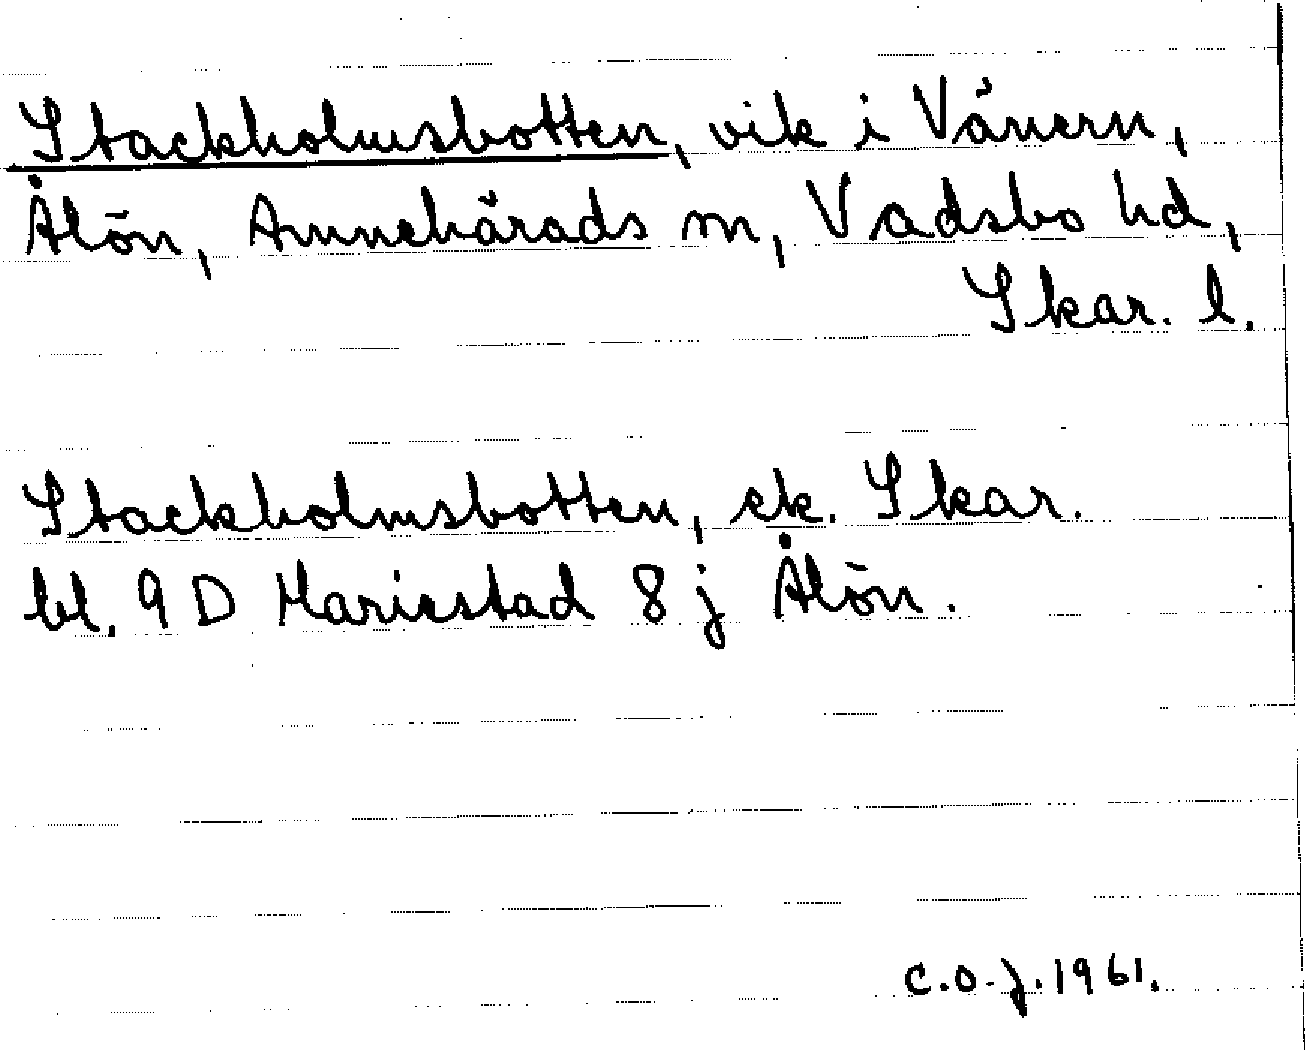 Stackholmsbotten, vik i Vänern,
Ålön, Amnehärads sn, Vadsbo hd,
Skar. l.
Stackholmsbotten, ek. Skar.
bl. 9 D Mariestad 8 j Ålön.
C.O.J. 1961.